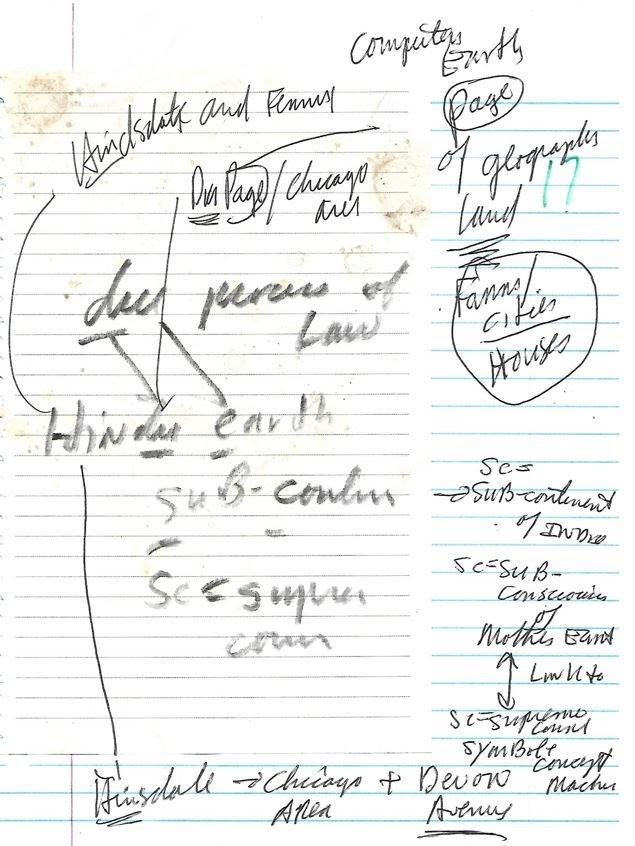 Computers
Earth
Page
of geographs
17
Land
Farms/
cities
Houses
Hindsdale and
Du Page/Chicago
Area
due process of
Law
Hindu earth
SUB-contin
Sc = supreme
court
Sc=
→SUB-continent
of India
Sc=SUB-
Conscious
of
Mother Earth
Link to
Sc=supreme
court
symBole
concept
Machine
Hinsdale → Chicago + Devon
Area Avenue